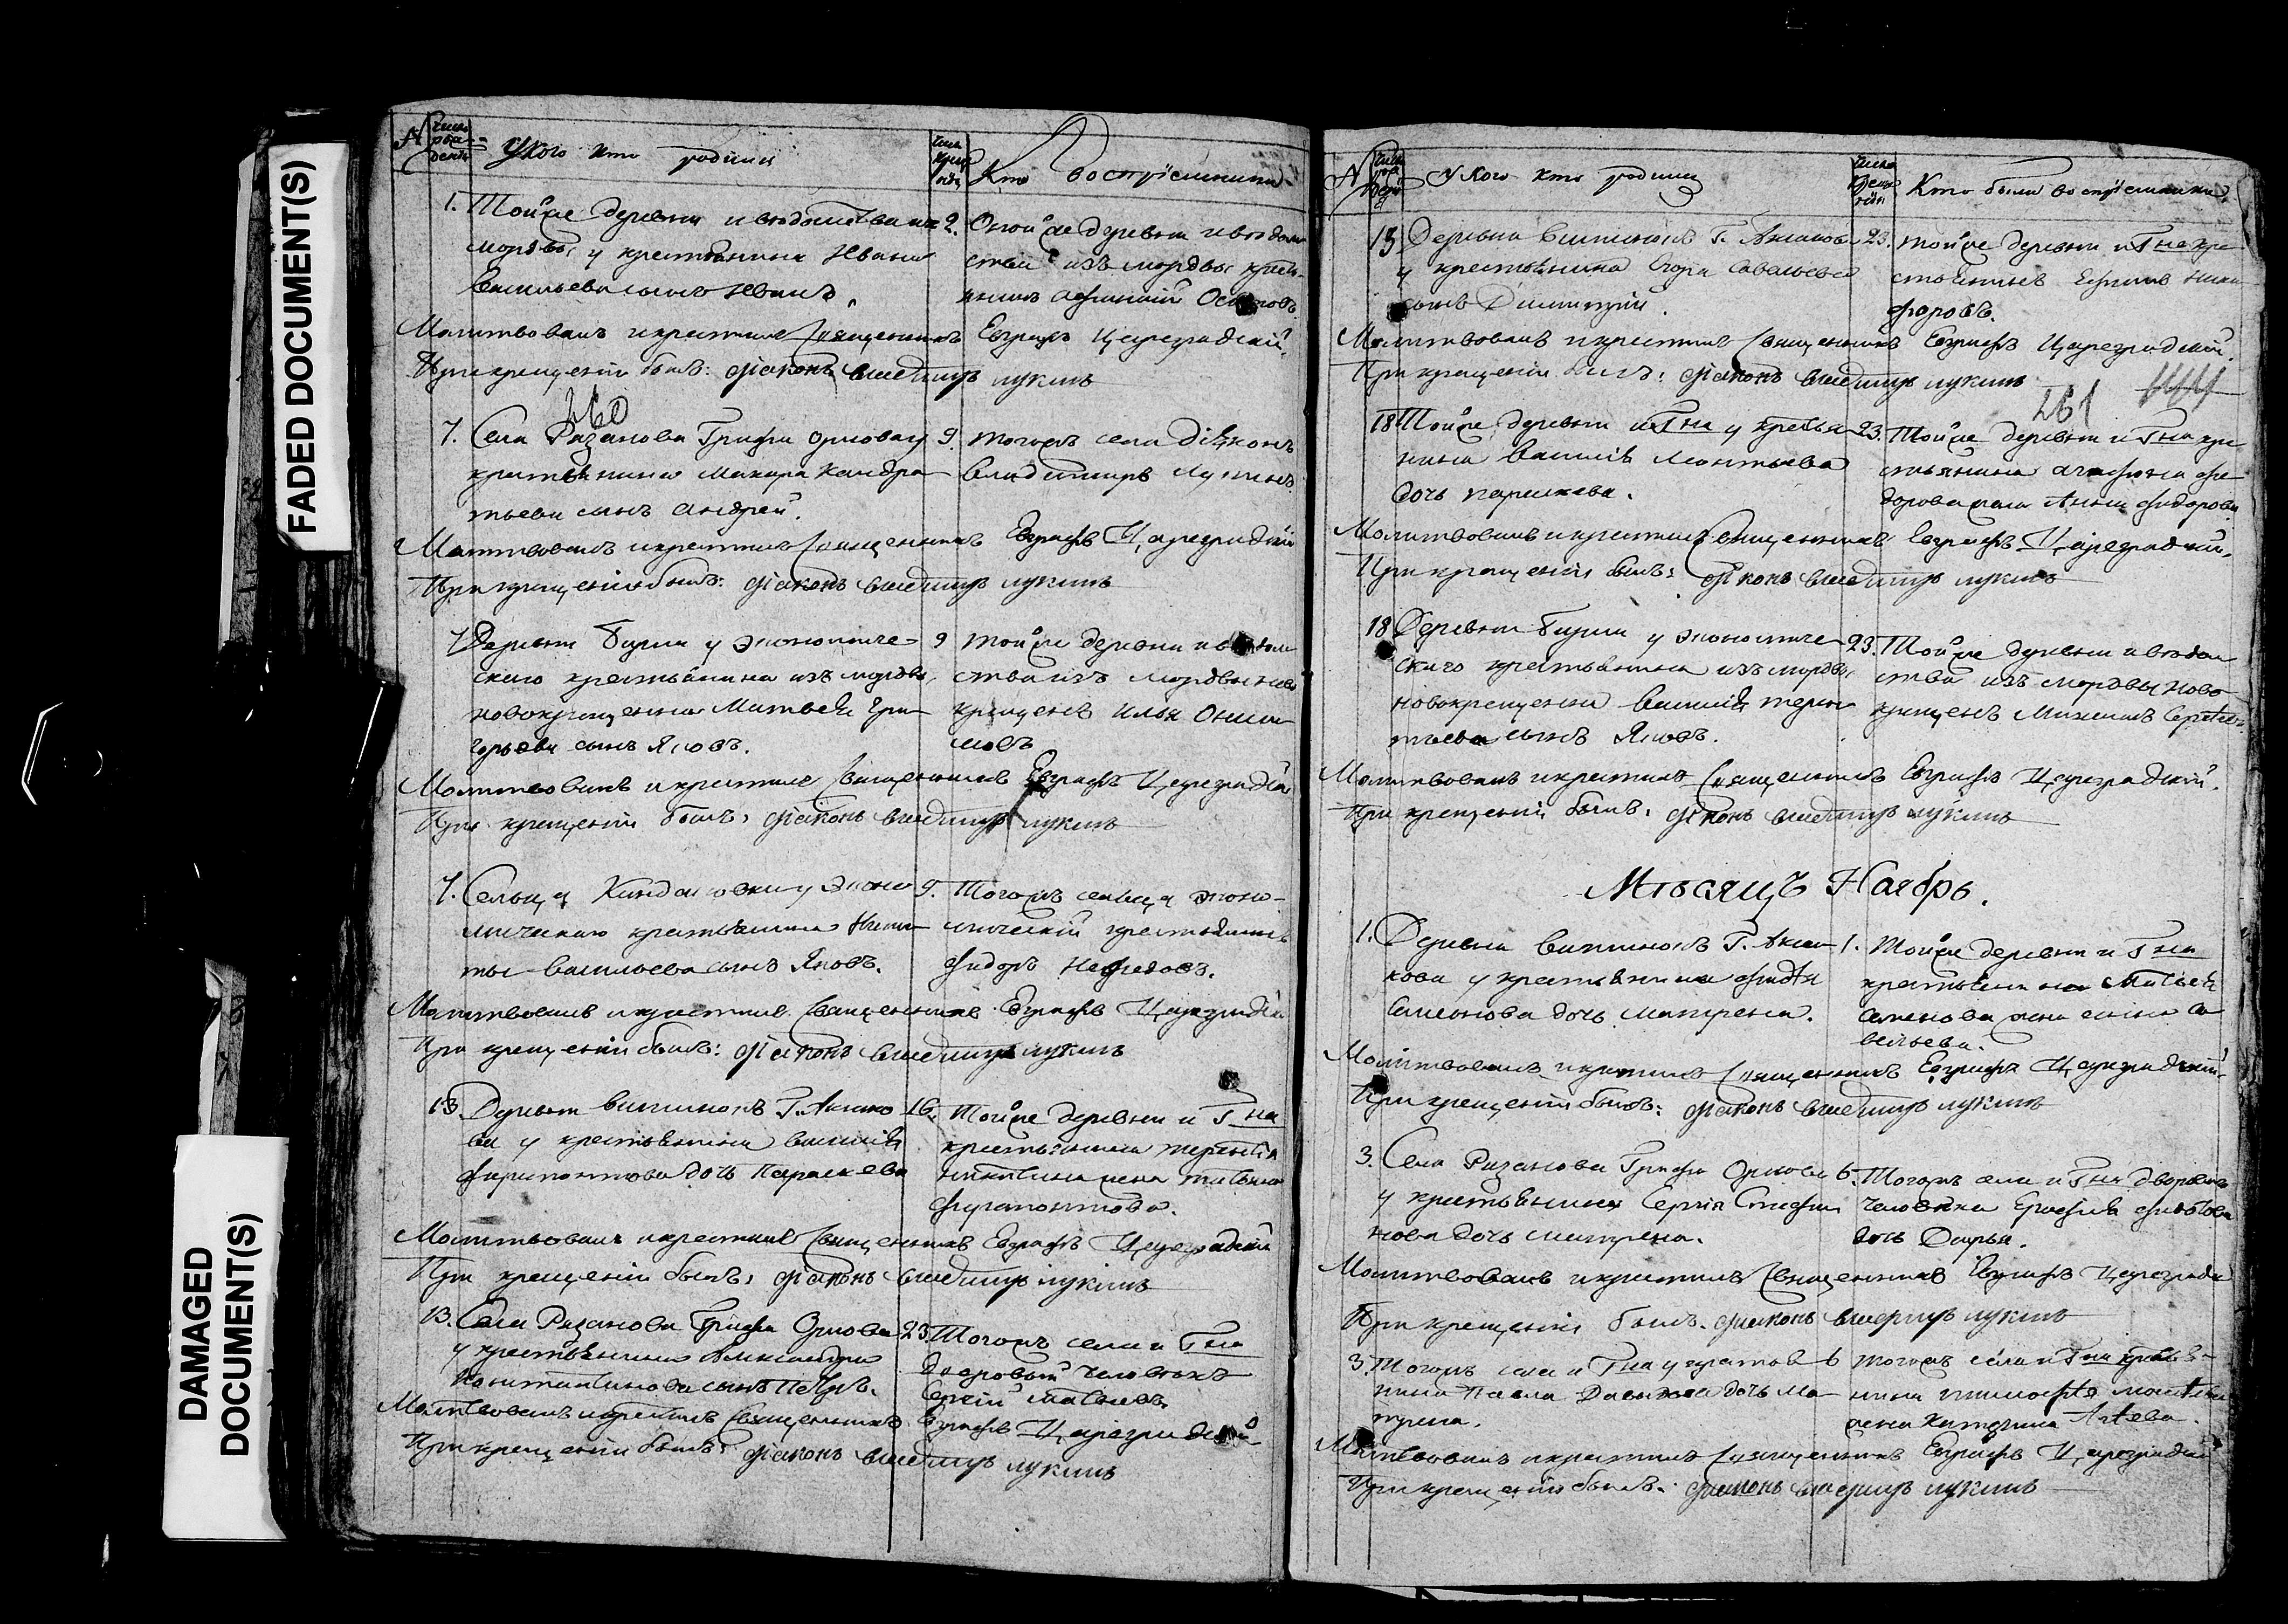 FADED DOCUMENT(S)
DAMAGED
DOCUMENT(S)
№
числ
рож
дені
У кого кто родилися
числ
крещ
нія
Кто восприемники
1. Тойже деревни и ведомства из
мордвы у крестьянина Ивана
Васильева сынъ Иванъ.
2. Оной же деревни и ведом
ства изъ мордвы кресть
янинъ Осиповъ
Молитвовалъ и крестилъ Священникъ Евграфъ Цареградскій.
При крещеніи былъ: діаконъ Владимиръ Лукинъ
260
7. Села Рязанова Графа Орлова у
крестьянина Макара Кандра
тьева сынъ Андрей.
9. Тогожъ села діаконъ
Владимиръ Лукинъ.
Молитвовалъ и крестилъ Священникъ Евграфъ Цареградскій
При крещеніи былъ: діаконъ Владимиръ Лукинъ
7. Деревни Бирли у экономиче-
скаго крестьянина изъ мордвы
новокрещенна Матвея Гри
горьева сынъ Яковъ.
9 Тойже деревни и ведом
ства изъ мордвы ново
крещенъ Илья Ониси
мовъ
Молитвовалъ и крестилъ Священникъ Евграфъ Цареградскій
При крещеніи былъ: діаконъ Владимиръ Лукинъ
7. Сельца Киндаковки у эконо
мическаго крестьянина Ники
ты Васильева сынъ Яковъ.
9. Тогожъ сельца эконо-
мическій крестьянинъ
Фидоръ Нефедовъ.
Молитвовалъ и крестилъ Священникъ Евграфъ Цареградскій
При крещеніи былъ: діаконъ Владимиръ Лукинъ
13. Деревни Вишенокъ Г. Аксако
ва у крестьянина Василія
Фарапонтова дочь Параскева
16. Тойже деревни и Гна
крестьянина Терентія
Никитина жена Татьяна
Фарапонтова.
Молитвовалъ и крестилъ Священникъ Евграфъ Цареградскій
При крещеніи былъ: діаконъ Владимиръ Лукинъ
13. Села Рязанова Графа Орлова
у крестьянина Александра
Константинова сынъ Петръ.
23. Тогожъ села и Гна
дворовый человекъ
Сергій Матвеевъ.
Молитвовалъ и крестилъ Священникъ Евграфъ Цареградскій
При крещеніи былъ: діаконъ Владимиръ Лукинъ
№
числ
рож
дені
У кого кто родился
числа
креще
нія
Кто были восприемники
13 Деревни Вишенокъ Г. Аксакова
у крестьянина Егора Савельева
сынъ Димитрій.
23. Тойже деревни и Гна кре
стьянинъ Ефимъ Ники
форовъ.
Молитвовалъ и крестилъ Священникъ Евграфъ Цареградскій.
При крещеніи былъ: діаконъ Владимиръ Лукинъ
261
18 Тойже деревни и Гна у крестья
нина Василія Леонтьева
дочь Параскева.
23. Тойже деревни и Гна кре
стьянина Агафона Фе
дорова жена Анна Фидорова
Молитвовалъ и крестилъ Священникъ Евграфъ Цареградскій.
При крещеніи былъ: діаконъ Владимиръ Лукинъ
18 Деревни Бирли у экономиче
скаго крестьянина изъ мордвы
новокрещенна Василія Терен
тьева сынъ Яковъ.
23. Тойже деревни и ведом
ства изъ мордвы ново
крещенъ Михаилъ Сергеев
Молитвовалъ и крестилъ Священникъ Евграфъ Цареградскій.
При крещеніи былъ: діаконъ Владимиръ Лукинъ
Мѣсяцъ Наябрь.
1. Деревни Вишенокъ Г. Акса
кова у крестьянина
Семенова дочь Матрена.
1. Тойже деревни и Гна
крестьянина Матвея
Семенова жена Са
вельева.
Молитвовалъ и крестилъ Священникъ Евграфъ Цареградскій.
При крещеніи былъ: діаконъ Владимиръ Лукинъ
3. Села Рязанова Графа Орлова
у крестьянина Сергія Стефа
нова дочь Матрена.
6. Тогожъ села и Гна двороваго
человека
дочь Дарья.
Молитвовалъ и крестилъ Священникъ Евграфъ Цареградскій
При крещеніи былъ: діаконъ Владимиръ Лукинъ
3. Тогожъ села и Гна у крестья
нина Павла Давыдова дочь Ма
трена.
6 Тогожъ села и Гна крестья-
нина Тимофея Матвеева
жена Катерина
Молитвовалъ и крестилъ Священникъ Евграфъ Цареградскій
При крещеніи былъ: діаконъ Владимиръ Лукинъ